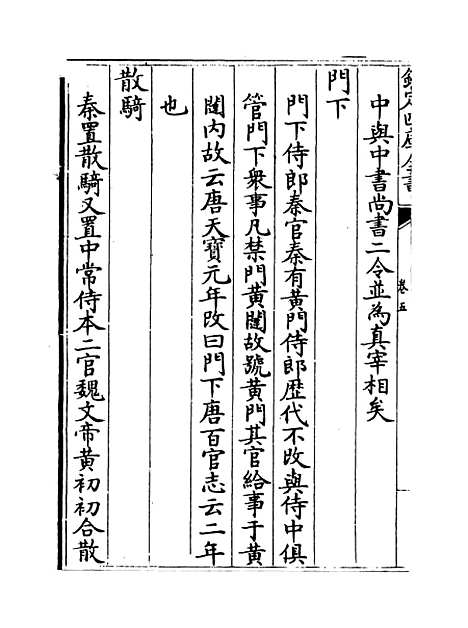 欽定四庫全書
卷五
中與中書尚書二令並為真宰相矣
門下
門下侍郎秦官秦有黃門侍郎歴代不改與侍中俱
管門下衆事凡禁門黃闥故號黃門其官給事于黃
闥内故云唐天寶元年改曰門下唐百官志云二年
也
散騎
秦置散騎又置中常侍本二官魏文帝黃初初合散